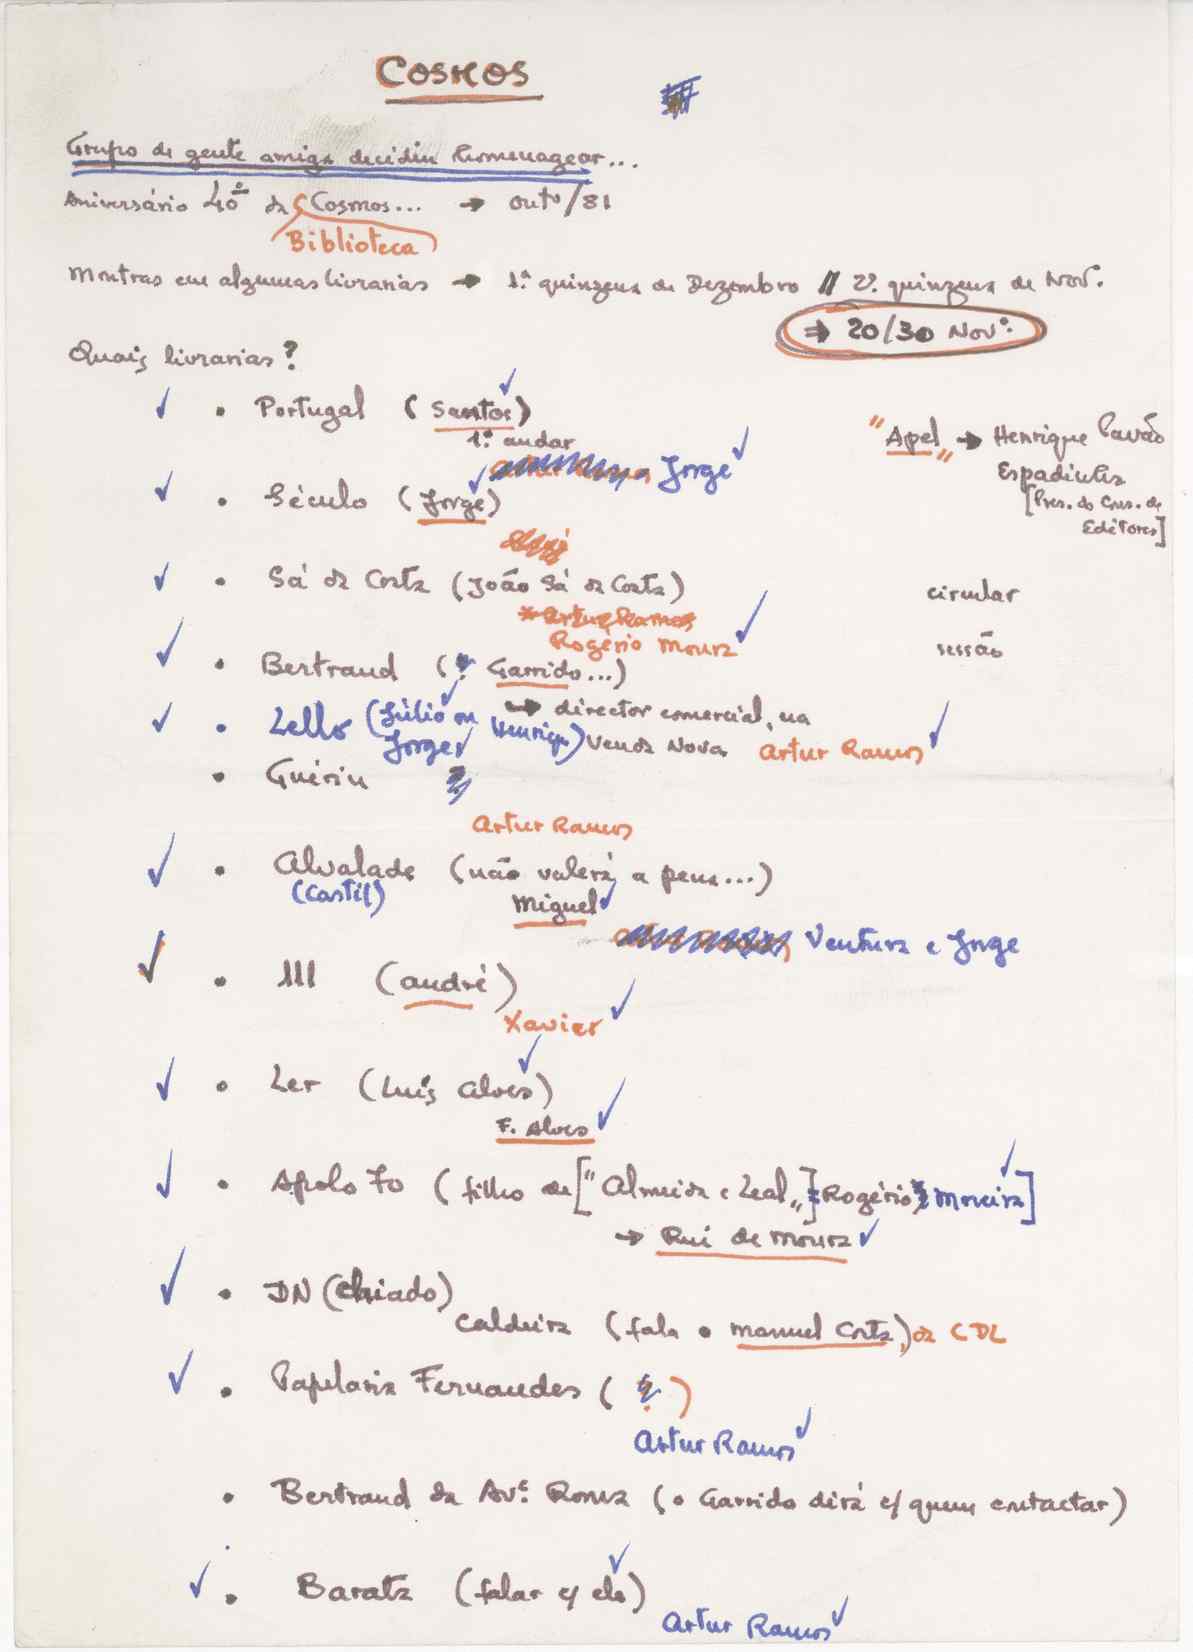 Cosmos
Grupo de gente amiga decidiu homenagear...
Aniversário 40º da Cosmos... → outº/81
Biblioteca
Montras em algumas livrarias → 1.ª quinzena de Dezembro // 2ª. quinzena de Nov.
⇒ 20/30 Novº.
Quais livrarias?
✓ • Portugal (Santos) ✓
1.º andar
"Apel" → Henrique Pavão
Espadinha
[Pres. do Cons. de
Editores]
Jorge ✓
✓ • Século (Jorge) ✓
✓ • Sá da Costa (João Sá da Costa)
circular
Artur Ramos
Rogério Moura ✓
sessão
✓ • Bertrand (Garrido...)
→ director comercial, na
Venda Nova. Artur Ramos ✓
✓ • Lello (Júlio ou Henrique)
Jorge ✓
• Guérin
Artur Ramos
✓ • Alvalade (não valerá a pena...)
(Castil)
Miguel ✓
Ventura e Jorge
✓ • 111 (André)
Xavier ✓
✓ • Ler (Luís Alves) ✓
F. Alves ✓
✓ • Apolo 70 (filho de ["Almeida e Leal"] Rogério Moreira] ✓
→ Rui de Moura ✓
✓ • DN (Chiado)
Caldeira (fala o Manuel Costa) da CDL
✓ • Papelaria Fernandes ( )
Artur Ramos ✓
• Bertrand da Avª. Roma (o Garrido dirá c/ quem contactar)
✓ • Barata (falar c/ ele) ✓
Artur Ramos ✓